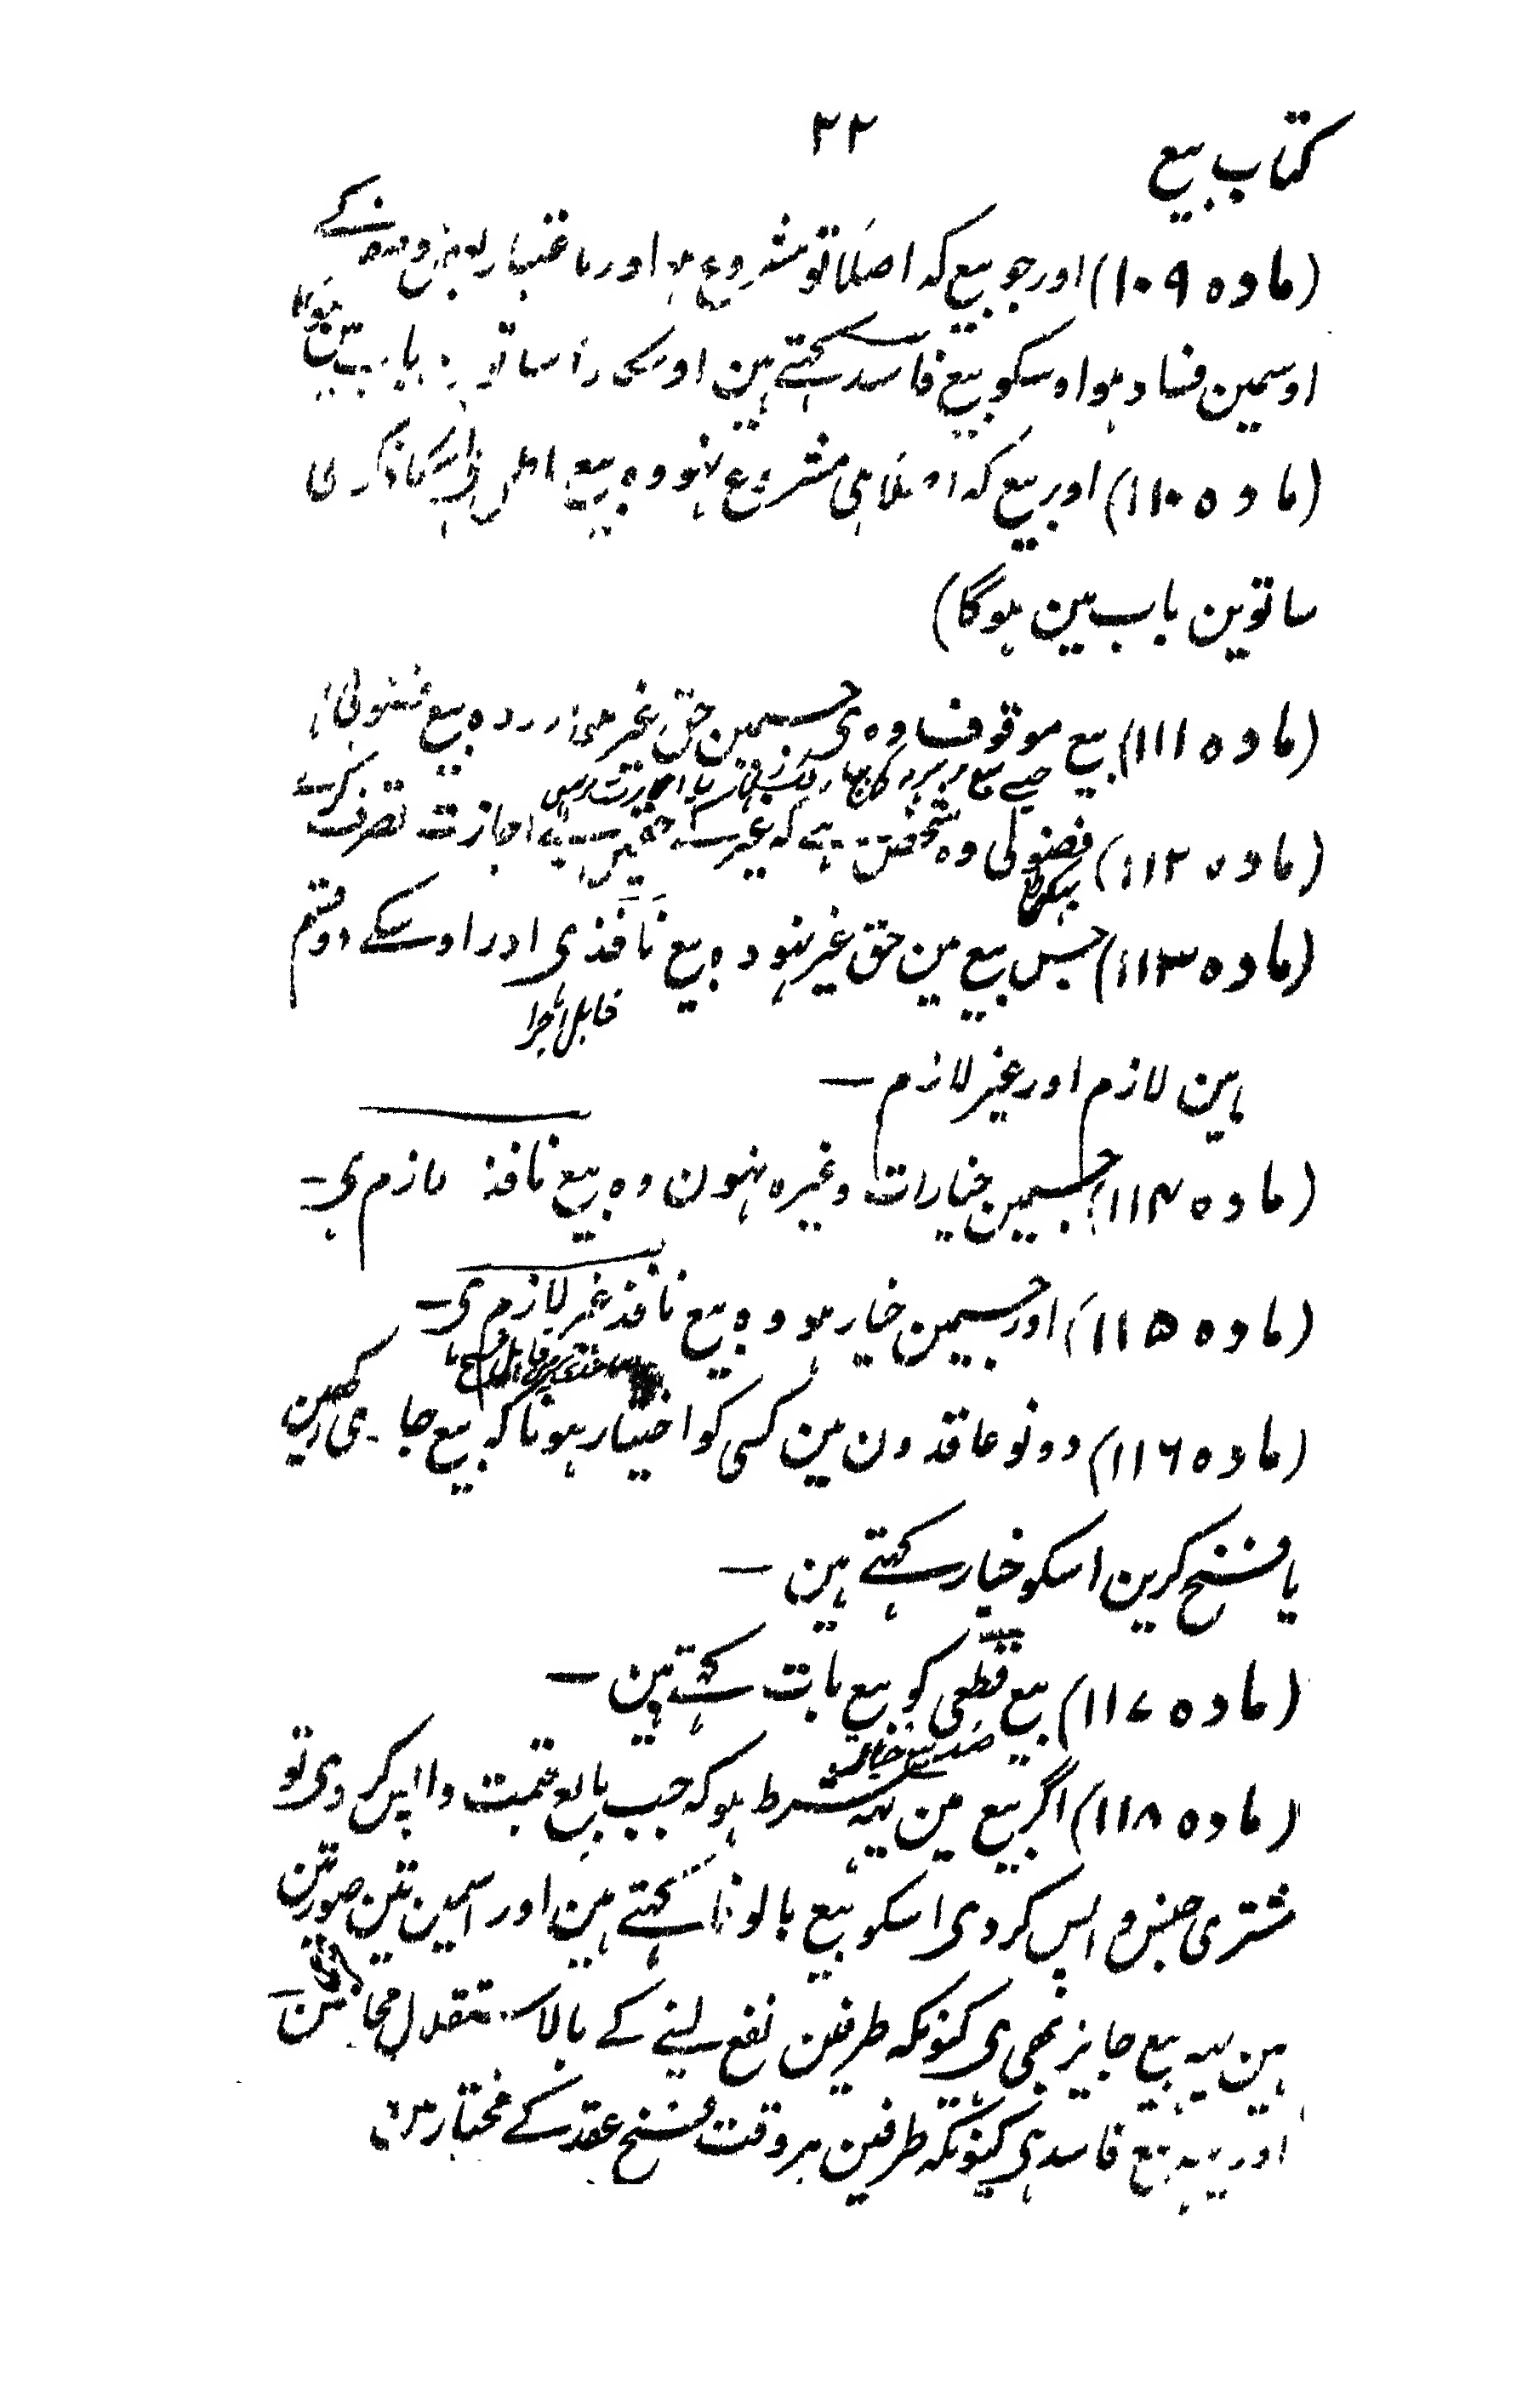 کتاب بیع
۲۲
(مادہ ۱۰۹) اور جو بیع کہ اصلاً تو مشروع ہو اور باعتبار بعض وصف کے
اوسمین فساد ہو اوسکو بیع فاسد کہتے ہین اوسکی
(مادہ ۱۱۰) اور بیع کہ اصلاً ہی مشروع نہو وہ بیع باطل ہی
ساتوین باب مین ہوگا)
(مادہ ۱۱۱) بیع موقوف وہ ہی جسمین حق غیر وہ بیع فضولی ہی
جیسے بیع
(مادہ ۱۱۲) فضولی وہ شخص ہے کہ غیر کے حق مین بے اجازت تصرف کرے
(مادہ ۱۱۳) جس بیع مین حق غیر نہو وہ بیع نافذ ہی اور اوسکے دو قسم
قابل اجرا
ہین لازم اور غیر لازم —
(مادہ ۱۱۴) جسمین خیارات وغیرہ نہون وہ بیع نافذ لازم ہی —
(مادہ ۱۱۵) اور جسمین خیار ہو وہ بیع نافذ غیر لازم ہی —
قابل فسخ
(مادہ ۱۱۶) دونو عاقدون مین کسی کو اختیار ہونا کہ بیع جاری رکھین
یا فسخ کرین اسکو خیار کہتے ہین —
(مادہ ۱۱۷) بیع قطعی کو بیع بات کہتے ہین —
(مادہ ۱۱۸) اگر بیع مین یہہ شرط ہو کہ جب بایع قیمت واپس کر دی تو
مشتری جنس واپس کر دی اسکو بیع بالوفا کہتے ہین اور اسمین تین صورتین
ہین یہہ بیع جایز بھی ہی کیونکہ طرفین نفع لینے کے بالاستقلال مجاز ہین
اور یہہ بیع فاسد ہی کیونکہ طرفین ہر وقت فسخ عقد کے مختار ہین